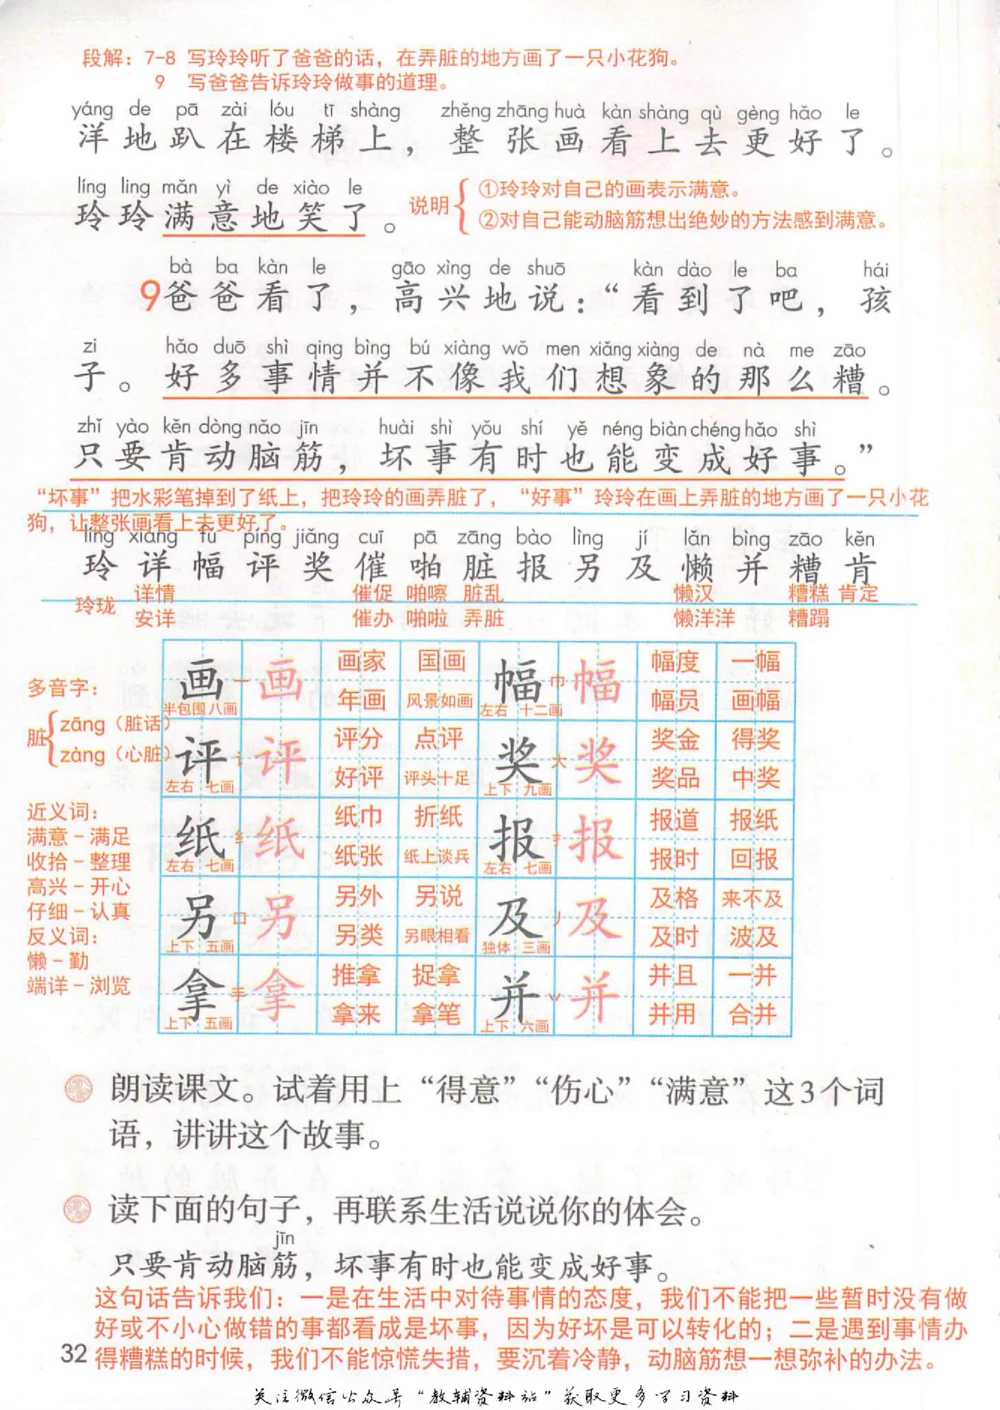 段解：7-8 写玲玲听了爸爸的话，在弄脏的地方画了一只小花狗。
9 写爸爸告诉玲玲做事的道理。
yáng de pā zài lóu tī shàng zhěng zhāng huà kàn shàng qù gèng hǎo le
洋地趴在楼梯上，整张画看上去更好了。
líng ling mǎn yì de xiào le
玲玲满意地笑了。
说明
①玲玲对自己的画表示满意。
②对自己能动脑筋想出绝妙的方法感到满意。
bà ba kàn le gāo xìng de shuō kàn dào le ba hái
9爸爸看了，高兴地说：“看到了吧，孩
zi hǎo duō shì qing bìng bú xiàng wǒ men xiǎng xiàng de nà me zāo
子。好多事情并不像我们想象的那么糟。
zhǐ yào kěn dòng nǎo jīn huài shì yǒu shí yě néng biàn chéng hǎo shì
只要肯动脑筋，坏事有时也能变成好事。”
“坏事”把水彩笔掉到了纸上，把玲玲的画弄脏了，“好事”玲玲在画上弄脏的地方画了一只小花
狗，让整张画看上去更好了。
líng xiáng fú píng jiǎng cuī pā zāng bào lìng jí lǎn bìng zāo kěn
玲详幅评奖催啪脏报另及懒并糟肯
玲珑 详情 催促 啪嚓 脏乱 懒汉 糟糕 肯定
安详 催办 啪啦 弄脏 懒洋洋 糟蹋
多音字：
脏
zāng（脏话）
zàng（心脏）
近义词：
满意－满足
收拾－整理
高兴－开心
仔细－认真
反义词：
懒－勤
端详－浏览
画 一 画 画家 国画 幅 巾 幅 幅度 一幅
半包围 八画 年画 风景如画 左右 十二画 幅员 画幅
评 讠 评 评分 点评 奖 大 奖 奖金 得奖
左右 七画 好评 评头十足 上下 九画 奖品 中奖
纸 纟 纸 纸巾 折纸 报 扌 报 报道 报纸
左右 七画 纸张 纸上谈兵 左右 七画 报时 回报
另 口 另 另外 另说 及 丿 及 及格 来不及
上下 五画 另类 另眼相看 独体 三画 及时 波及
拿 手 拿 推拿 捉拿 并 丷 并 并且 一并
上下 五画 拿来 拿笔 上下 六画 并用 合并
朗读课文。试着用上“得意”“伤心”“满意”这3个词
语，讲讲这个故事。
读下面的句子，再联系生活说说你的体会。
jīn
只要肯动脑筋，坏事有时也能变成好事。
这句话告诉我们：一是在生活中对待事情的态度，我们不能把一些暂时没有做
好或不小心做错的事都看成是坏事，因为好坏是可以转化的；二是遇到事情办
得糟糕的时候，我们不能惊慌失措，要沉着冷静，动脑筋想一想弥补的办法。
32
关注微信公众号“教辅资料站”获取更多学习资料